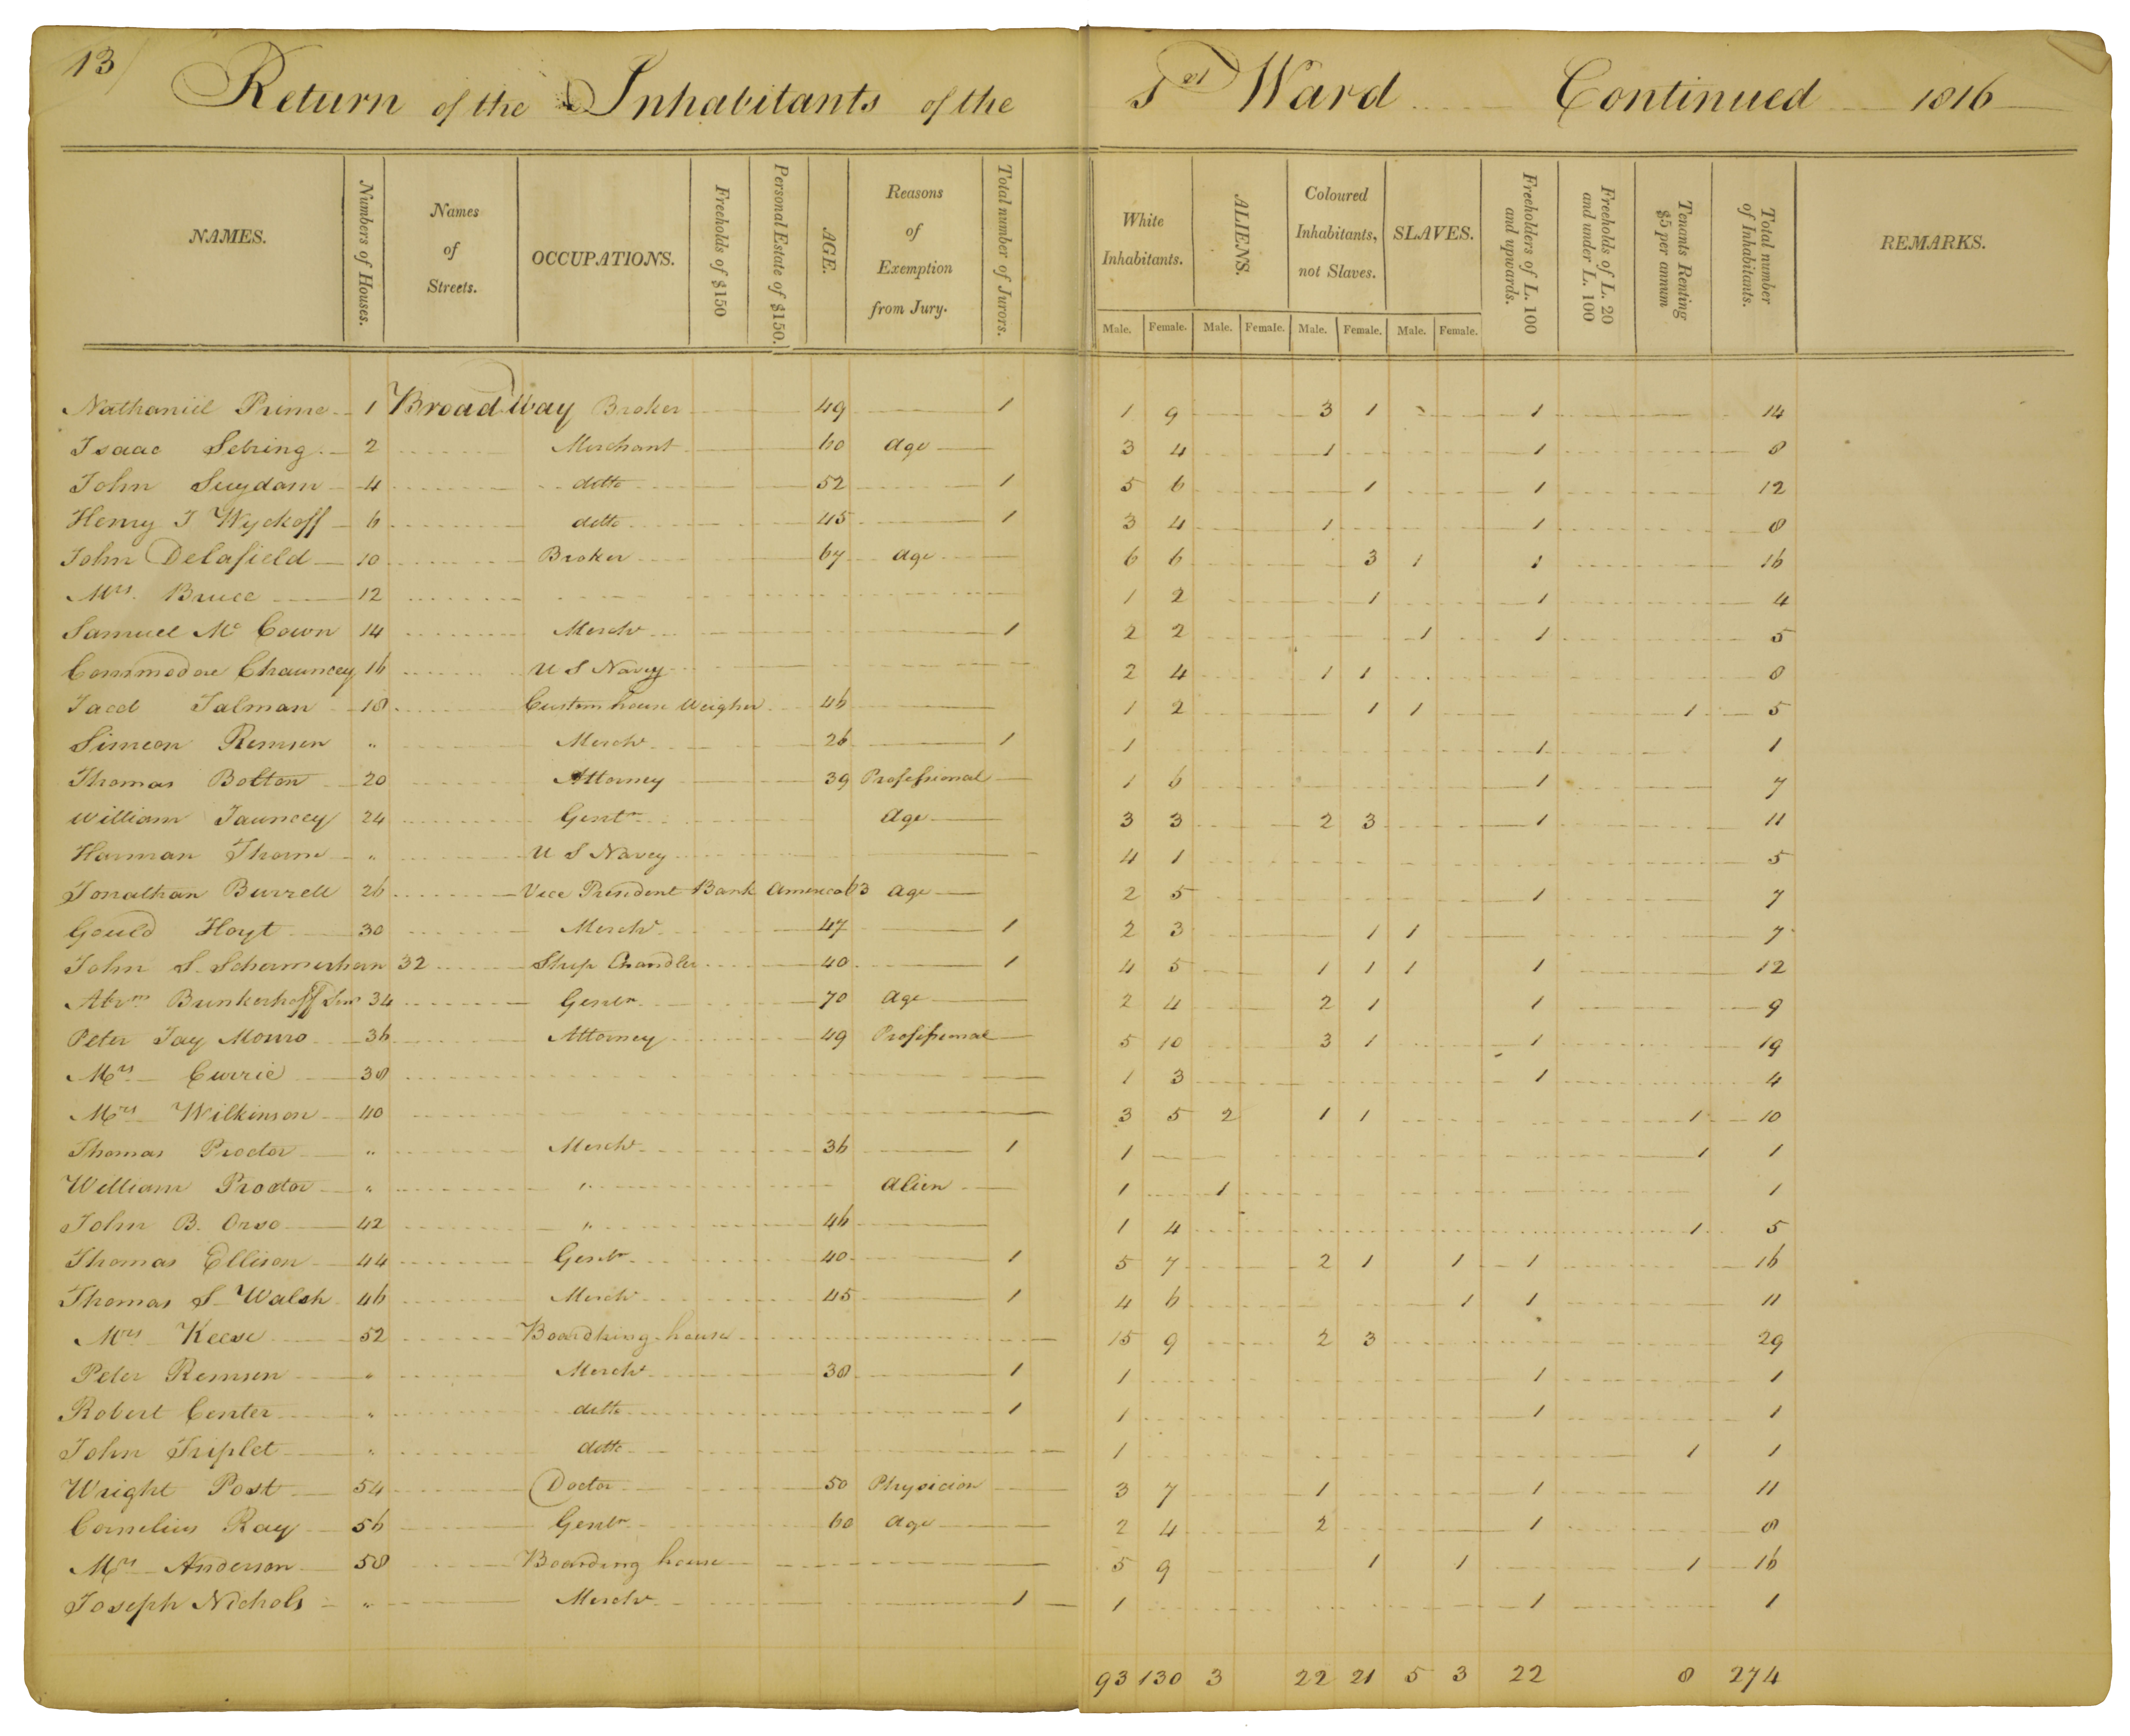 13
Return of the Inhabitants of the 1st Ward Continued 1816
NAMES. Numbers of Houses. Names of Streets. OCCUPATIONS. Freeholds of $150 Personal Estate of $150. AGE. Reasons of Exemption from Jury. Total number of Jurors. White Inhabitants. ALIENS. Coloured Inhabitants, not Slaves. SLAVES. Freeholders of L. 100 and upwards. Freeholds of L. 20 and under L. 100 Tenants Renting $5 per annum Total number of Inhabitants. REMARKS.
Male. Female. Male. Female. Male. Female. Male. Female.
Nathaniel Prime 1 Broad Way Broker 49 1 1 9 3 1 1 14
Isaac Sebring 2 Merchant 60 Age 3 4 1 1 8
John Suydam 4 ditto 52 1 5 6 1 1 12
Henry J Wyckoff 6 ditto 45 1 3 4 1 1 8
John Delafield 10 Broker 67 Age 6 6 3 1 1 16
Mrs. Bruce 12 1 2 1 1 4
Samuel Mc Cown 14 Mercht 1 2 2 1 1 5
Commodore Chauncey 16 U S Navy 2 4 1 1 8
Jacob Talman 18 Custom house Weigher 46 1 2 1 1 1 5
Simeon Remsen " Mercht 26 1 1 1 1
Thomas Bolton 20 Attorney 39 Professional 1 6 1 7
William Jauncey 24 Gentn Age 3 3 2 3 1 11
Harman Thorne " U S Navy 4 1 5
Jonathan Burrell 26 Vice President Bank America 63 Age 2 5 1 7
Gould Hoyt 30 Mercht 47 1 2 3 1 1 7
John S. Schermerhan 32 Ship Chandler 40 1 4 5 1 1 1 1 12
Abrm Brinkerhoff Senr 34 Gentn 70 Age 2 4 2 1 1 9
Peter Jay Monro 36 Attorney 49 Professional 5 10 3 1 1 19
Mrs Currie 38 1 3 1 4
Mrs Wilkinson 40 3 5 2 1 1 1 10
Thomas Proctor " Mercht 36 1 1 1 1
William Proctor " " Alien 1 1 1
John B. Orso 42 " 46 1 4 1 5
Thomas Ellison 44 Gentn 40 1 5 7 2 1 1 1 16
Thomas S Walsh 46 Mercht 45 1 4 6 1 1 11
Mrs Keese 52 Boardking house 15 9 2 3 29
Peter Remsen " Mercht 38 1 1 1 1
Robert Center " ditto 1 1 1 1
John Triplet " ditto 1 1 1
Wright Post 54 Doctor 50 Physician 3 7 1 1 11
Cornelius Ray 56 Gentn 60 Age 2 4 2 1 8
Mrs Anderson 58 Boarding house 5 9 1 1 1 16
Joseph Nichols " Mercht 1 1 1 1
93 130 3 22 21 5 3 22 8 274